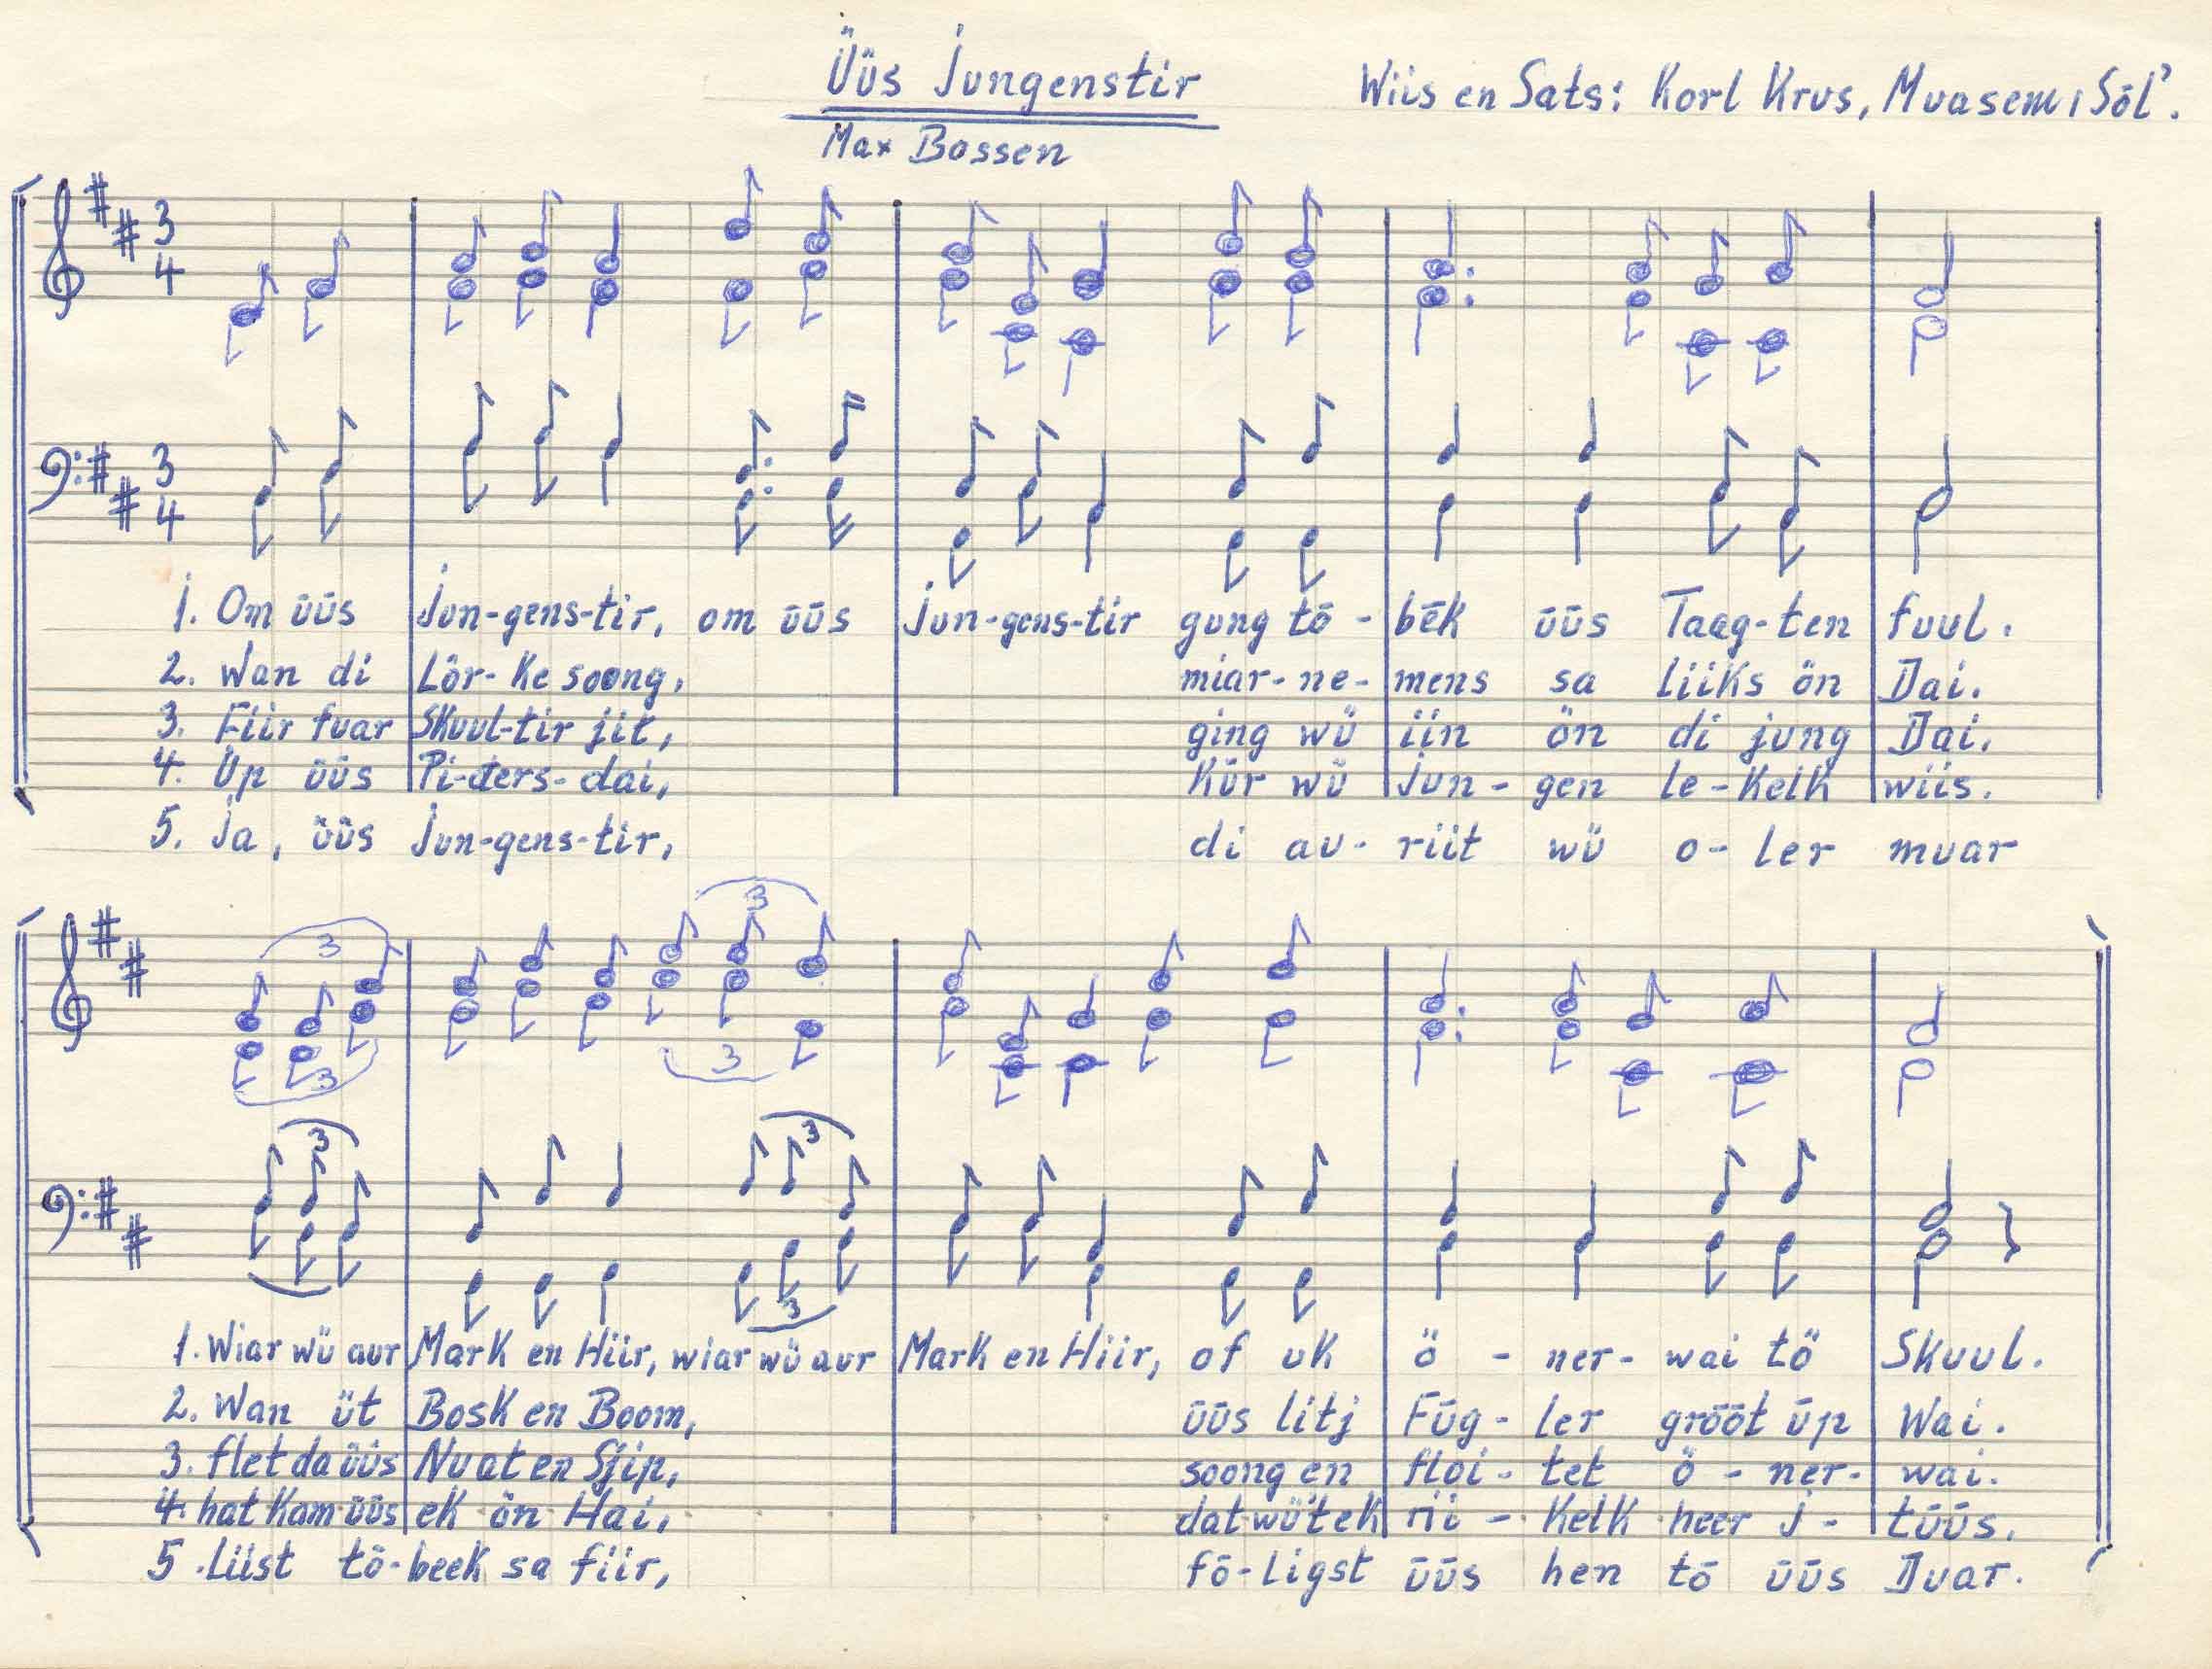 Üüs Jungenstir
Wiis en Sats: Korl Krus, Muasem, Söl'.
Max Bossen
3
4
3
4
1. Om üüs Jun-gens-tir, om üüs Jun-gens-tir gung tö-bēk üüs Taag-ten fuul.
2. Wan di Lör-ke soong, miar-ne-mens sa liiks ön Dai.
3. Fiir fuar Skuul-tir jit, ging wü iin ön di jung Dai.
4. Üp üüs Pi-ders-dai, Kür wü Jun-gen le-kelk wiis.
5. Ja, üüs Jun-gens-tir, di au-riit wü o-ler muar
3
3
3
3
3
3
3
1. Wiar wü aur Mark en Hiir, wiar wü aur Mark en Hiir, of uk ö-ner-wai tö Skuul.
2. Wan üt Bosk en Boom, üüs litj Füg-ler grööt üp Wai.
3. flet da üüs Nuat en Sjip, soong en floi-tet ö-ner-wai.
4. hat kam üüs ek ön Hai, dat wü'tek rii-kelk heer i-tüüs.
5. Liist tö-beek sa fiir, fö-ligst üüs hen tö üüs Duar.